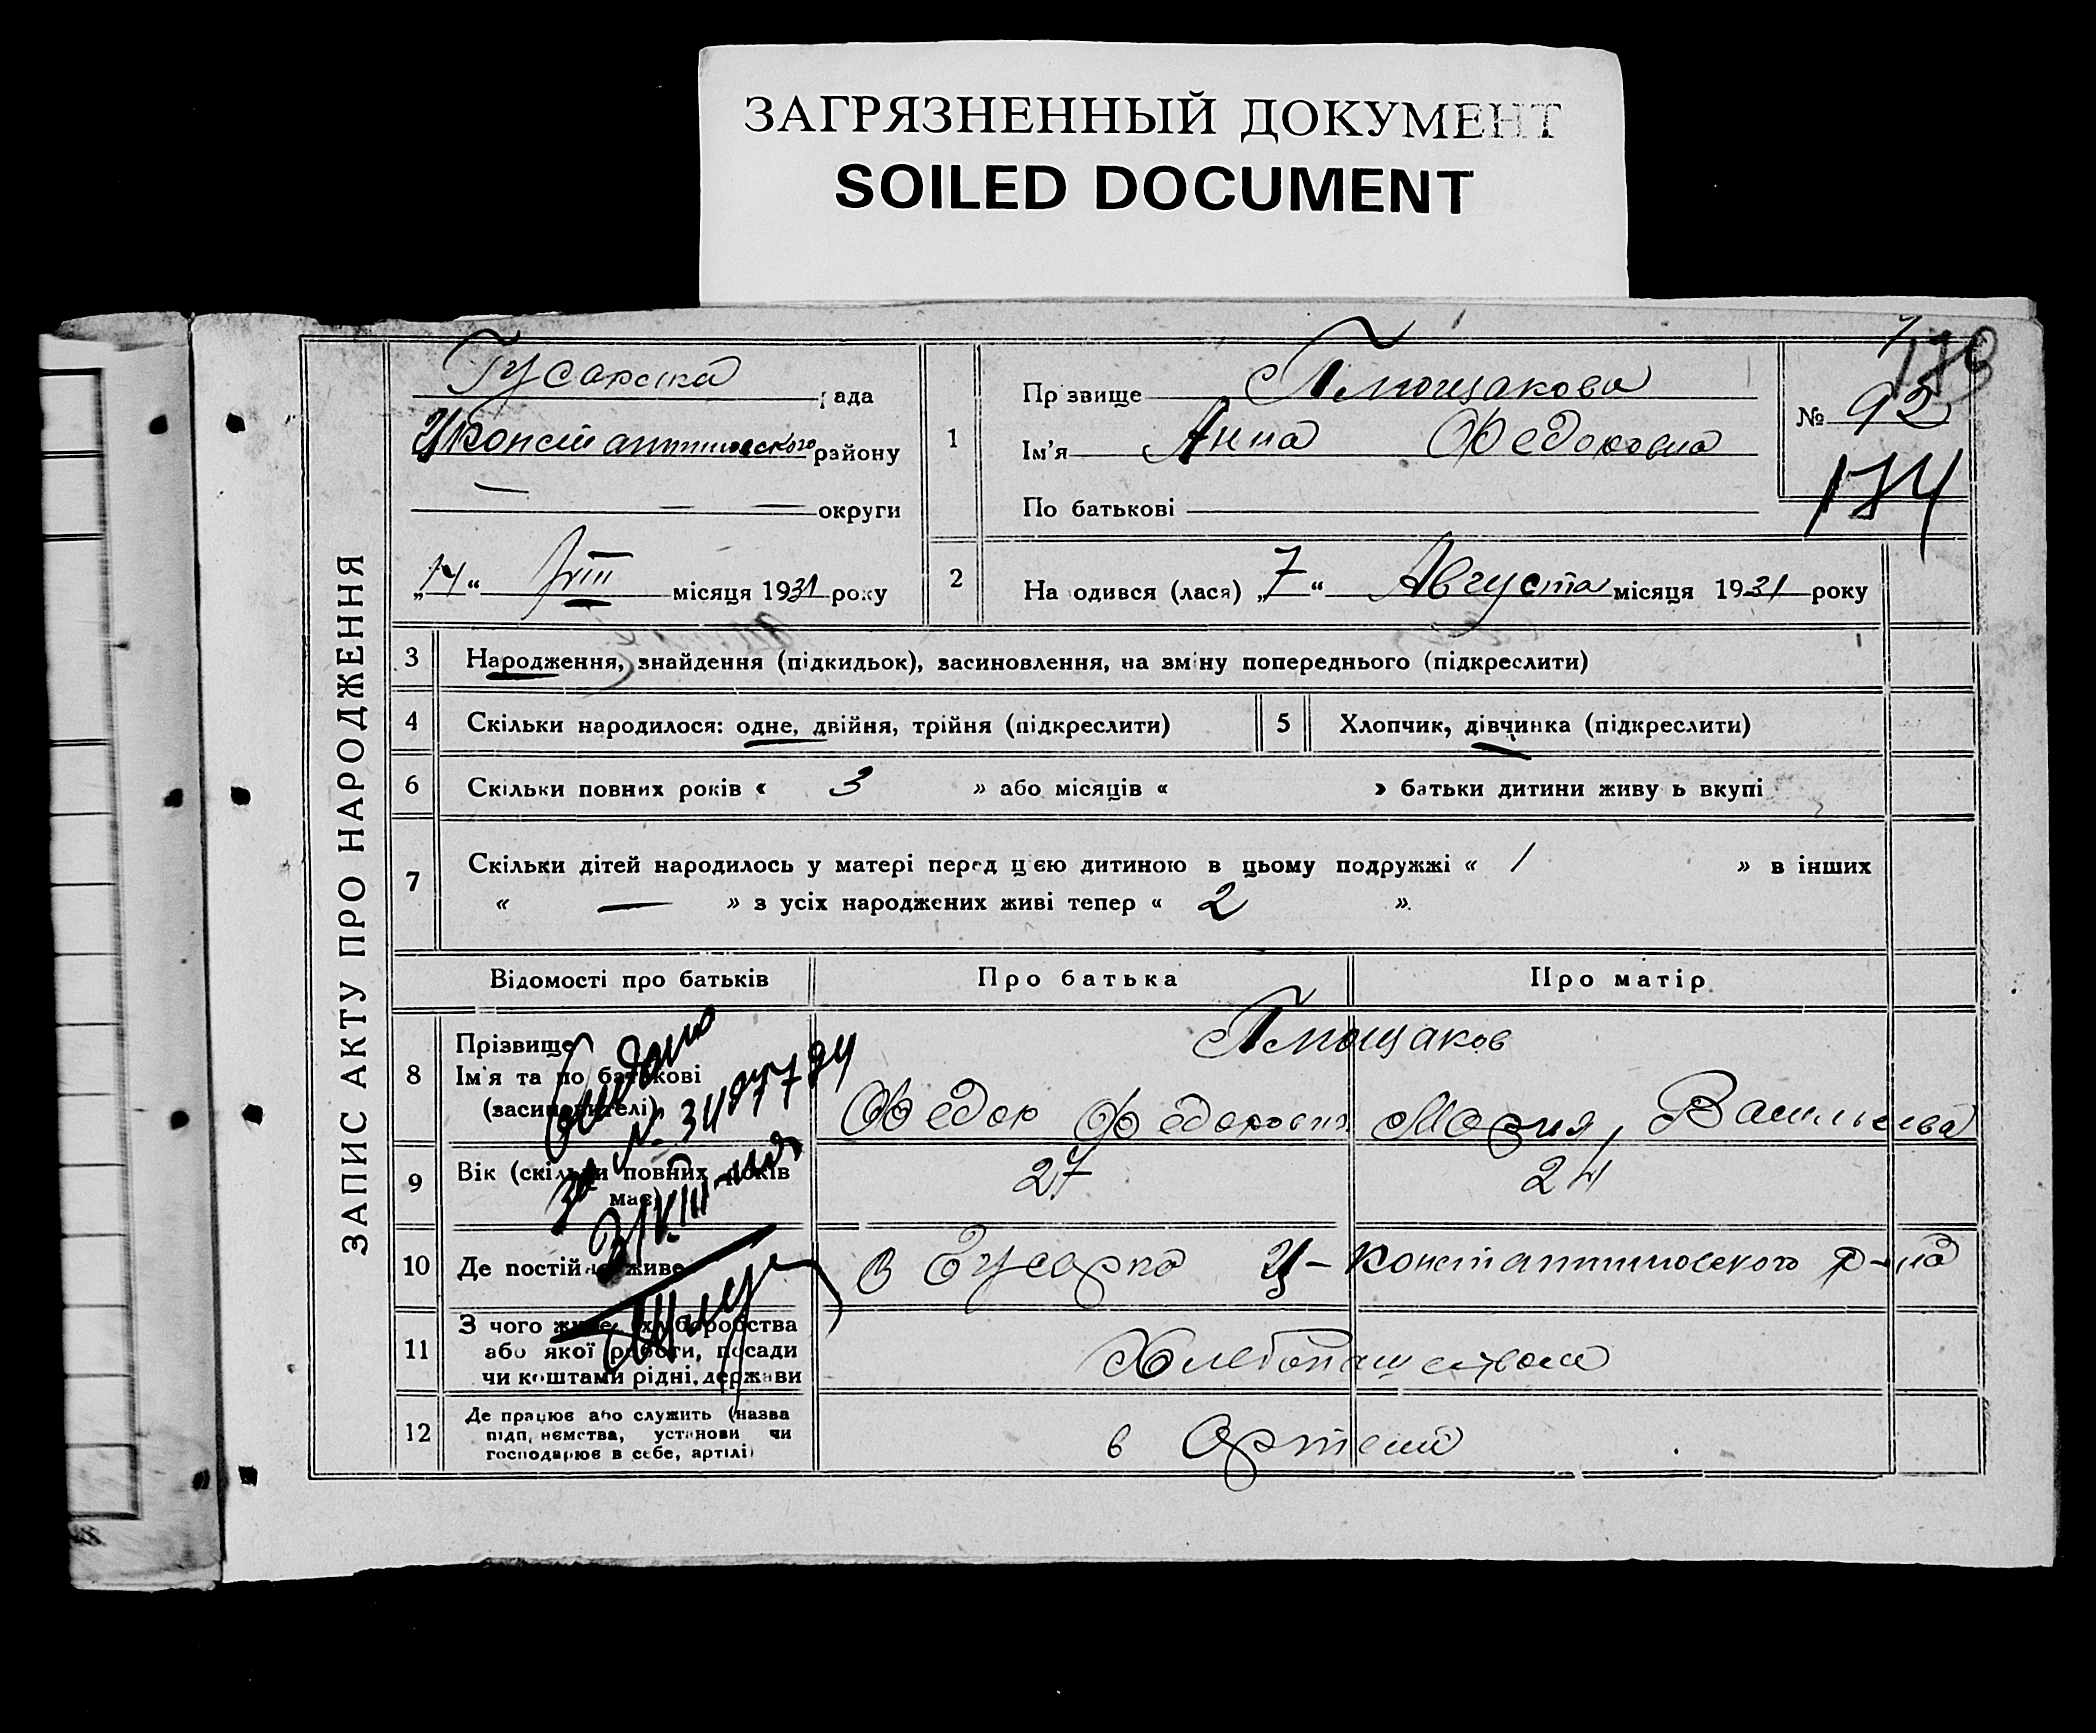 ЗАГРЯЗНЕННЫЙ ДОКУМЕНТ
SOILED DOCUMENT
ЗАПИС АКТУ ПРО НАРОДЖЕННЯ
Гусарска рада
Цконстантиновского району
— — — округи
„14“ VIII місяця 1931 року
1
Прізвище Плющакова
Ім'я Анна Федоровна
По батькові
178
№ 92
174
2
Народився (лася) „7“ Августа місяця 1931 року
3 Народження, знайдення (підкидьок), засиновлення, на зміну попереднього (підкреслити)
4 Скільки народилося: одне, двійня, трійня (підкреслити)
5 Хлопчик, дівчинка (підкреслити)
6 Скільки повних років « 3 » або місяців « » батьки дитини живуть вкупі
7 Скільки дітей народилось у матері перед цією дитиною в цьому подружжі « 1 » в інших
« — » з усіх народжених живі тепер « 2 ».
Відомості про батьків Про батька Про матір
8 Прізвище
Ім'я та по батькові
(засиновителі)
Плющаков
Федор Федорович Мария Васильевна
9 Вік (скільки повних років
має)
27 24
10 Де постійно живе
в Гусарка Ц-Константиновского р-на
11 З чого живе (хліборобства
або якої роботи, посади
чи коштами рідні, держави
Хлебопашеством
12 Де працює або служить (назва
підприємства, установи чи
господарює в себе, артілі)
в Артели